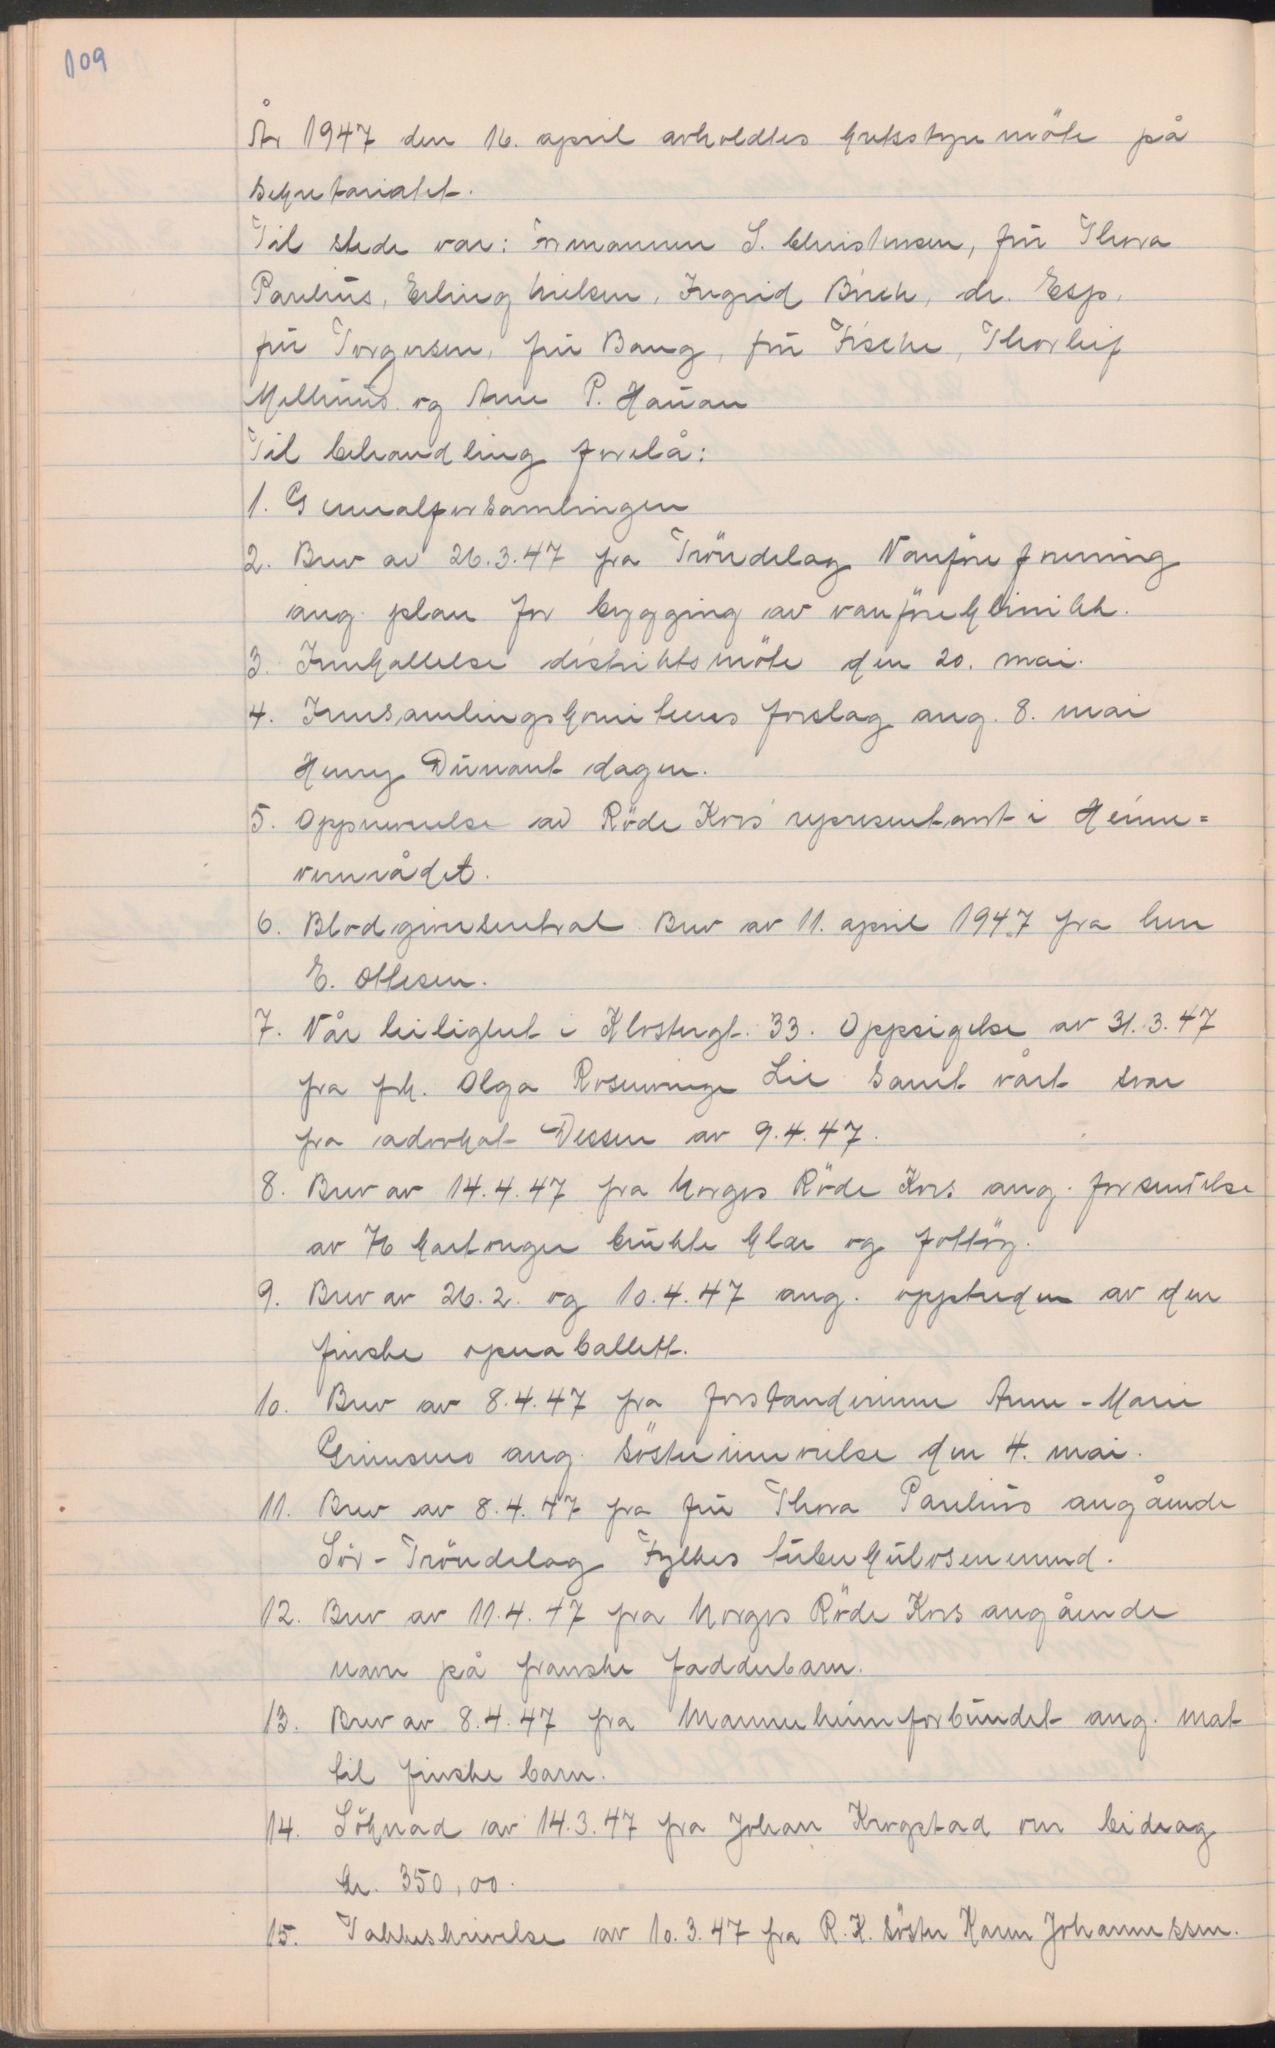 109
År 1947 den 16. april avholdtes kretsstyremöte på
sekretariatet.
Til stede var: Formannen S. Christensen, frü Thora
Paulius, Erling Nielsen, Ingrid Birch, dr. Esp,
frü Torgersen, frü Bang, frü Fische, Thorleif
Mellinüs og Arne P. Haüan
Til behandling forelå:
1. Generalforsamlingen
2. Brev av 26.3.47 fra Tröndelag Vanföreforening
ang. plan for bygging av vanföreklinikk.
3. Innkallelse distriktsmöte den 20. mai.
4. Innsamlingskomiteens forslag ang. 8. mai
Henry Dünant dagen.
5. Oppnevnelse av Röde Kors representant i Heime=
vernrådet.
6. Blodgiversentral Brev av 11. april 1947 fra herr
E. Ottesen.
7. Vår leilighet i Klostergt. 33. Oppsigelse av 31.3.47
fra frk. Olga Rosenvinge Lie samt vårt svar
fra advokat Dessen av 9.4.47.
8. Brev av 14.4.47 fra Norges Röde Kors ang. forsendelse
av 76 kartonger brükte klær og fottöy.
9. Brev av 26.2. og 10.4.47 ang. opptreden av den
finske operaballett.
10. Brev av 8.4.47 fra forstanderinne Anne-Marie
Grimsmo ang. Sösterinnvielse den 4. mai.
11. Brev av 8.4.47 fra frü Thora Paulius angående
Sör-Tröndelag Fylkes tüberkülosenemnd.
12. Brev av 11.4.47 fra Norges Röde Kors angående
navn på franske fadderbarn.
13. Brev av 8.4.47 fra Mannerheimforbündet ang. mat
til finske barn.
14. Söknad av 14.3.47 fra Johan Krogstad om bidrag
kr. 350,00.
15. Takkeskrivelse av 10.3.47 fra R.K. söster Karen Johannessen.